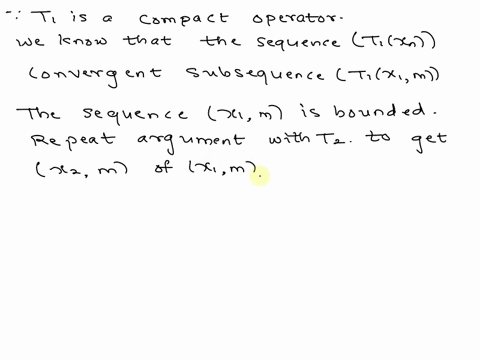 ∵ T₁ is a compact operator.
We know that the sequence (T₁(xn))
Convergent subsequence (T₁(x₁,m))
The sequence (x₁,m) is bounded.
Repeat argument with T₂. to get
(x₂, m) of (x₁,m).